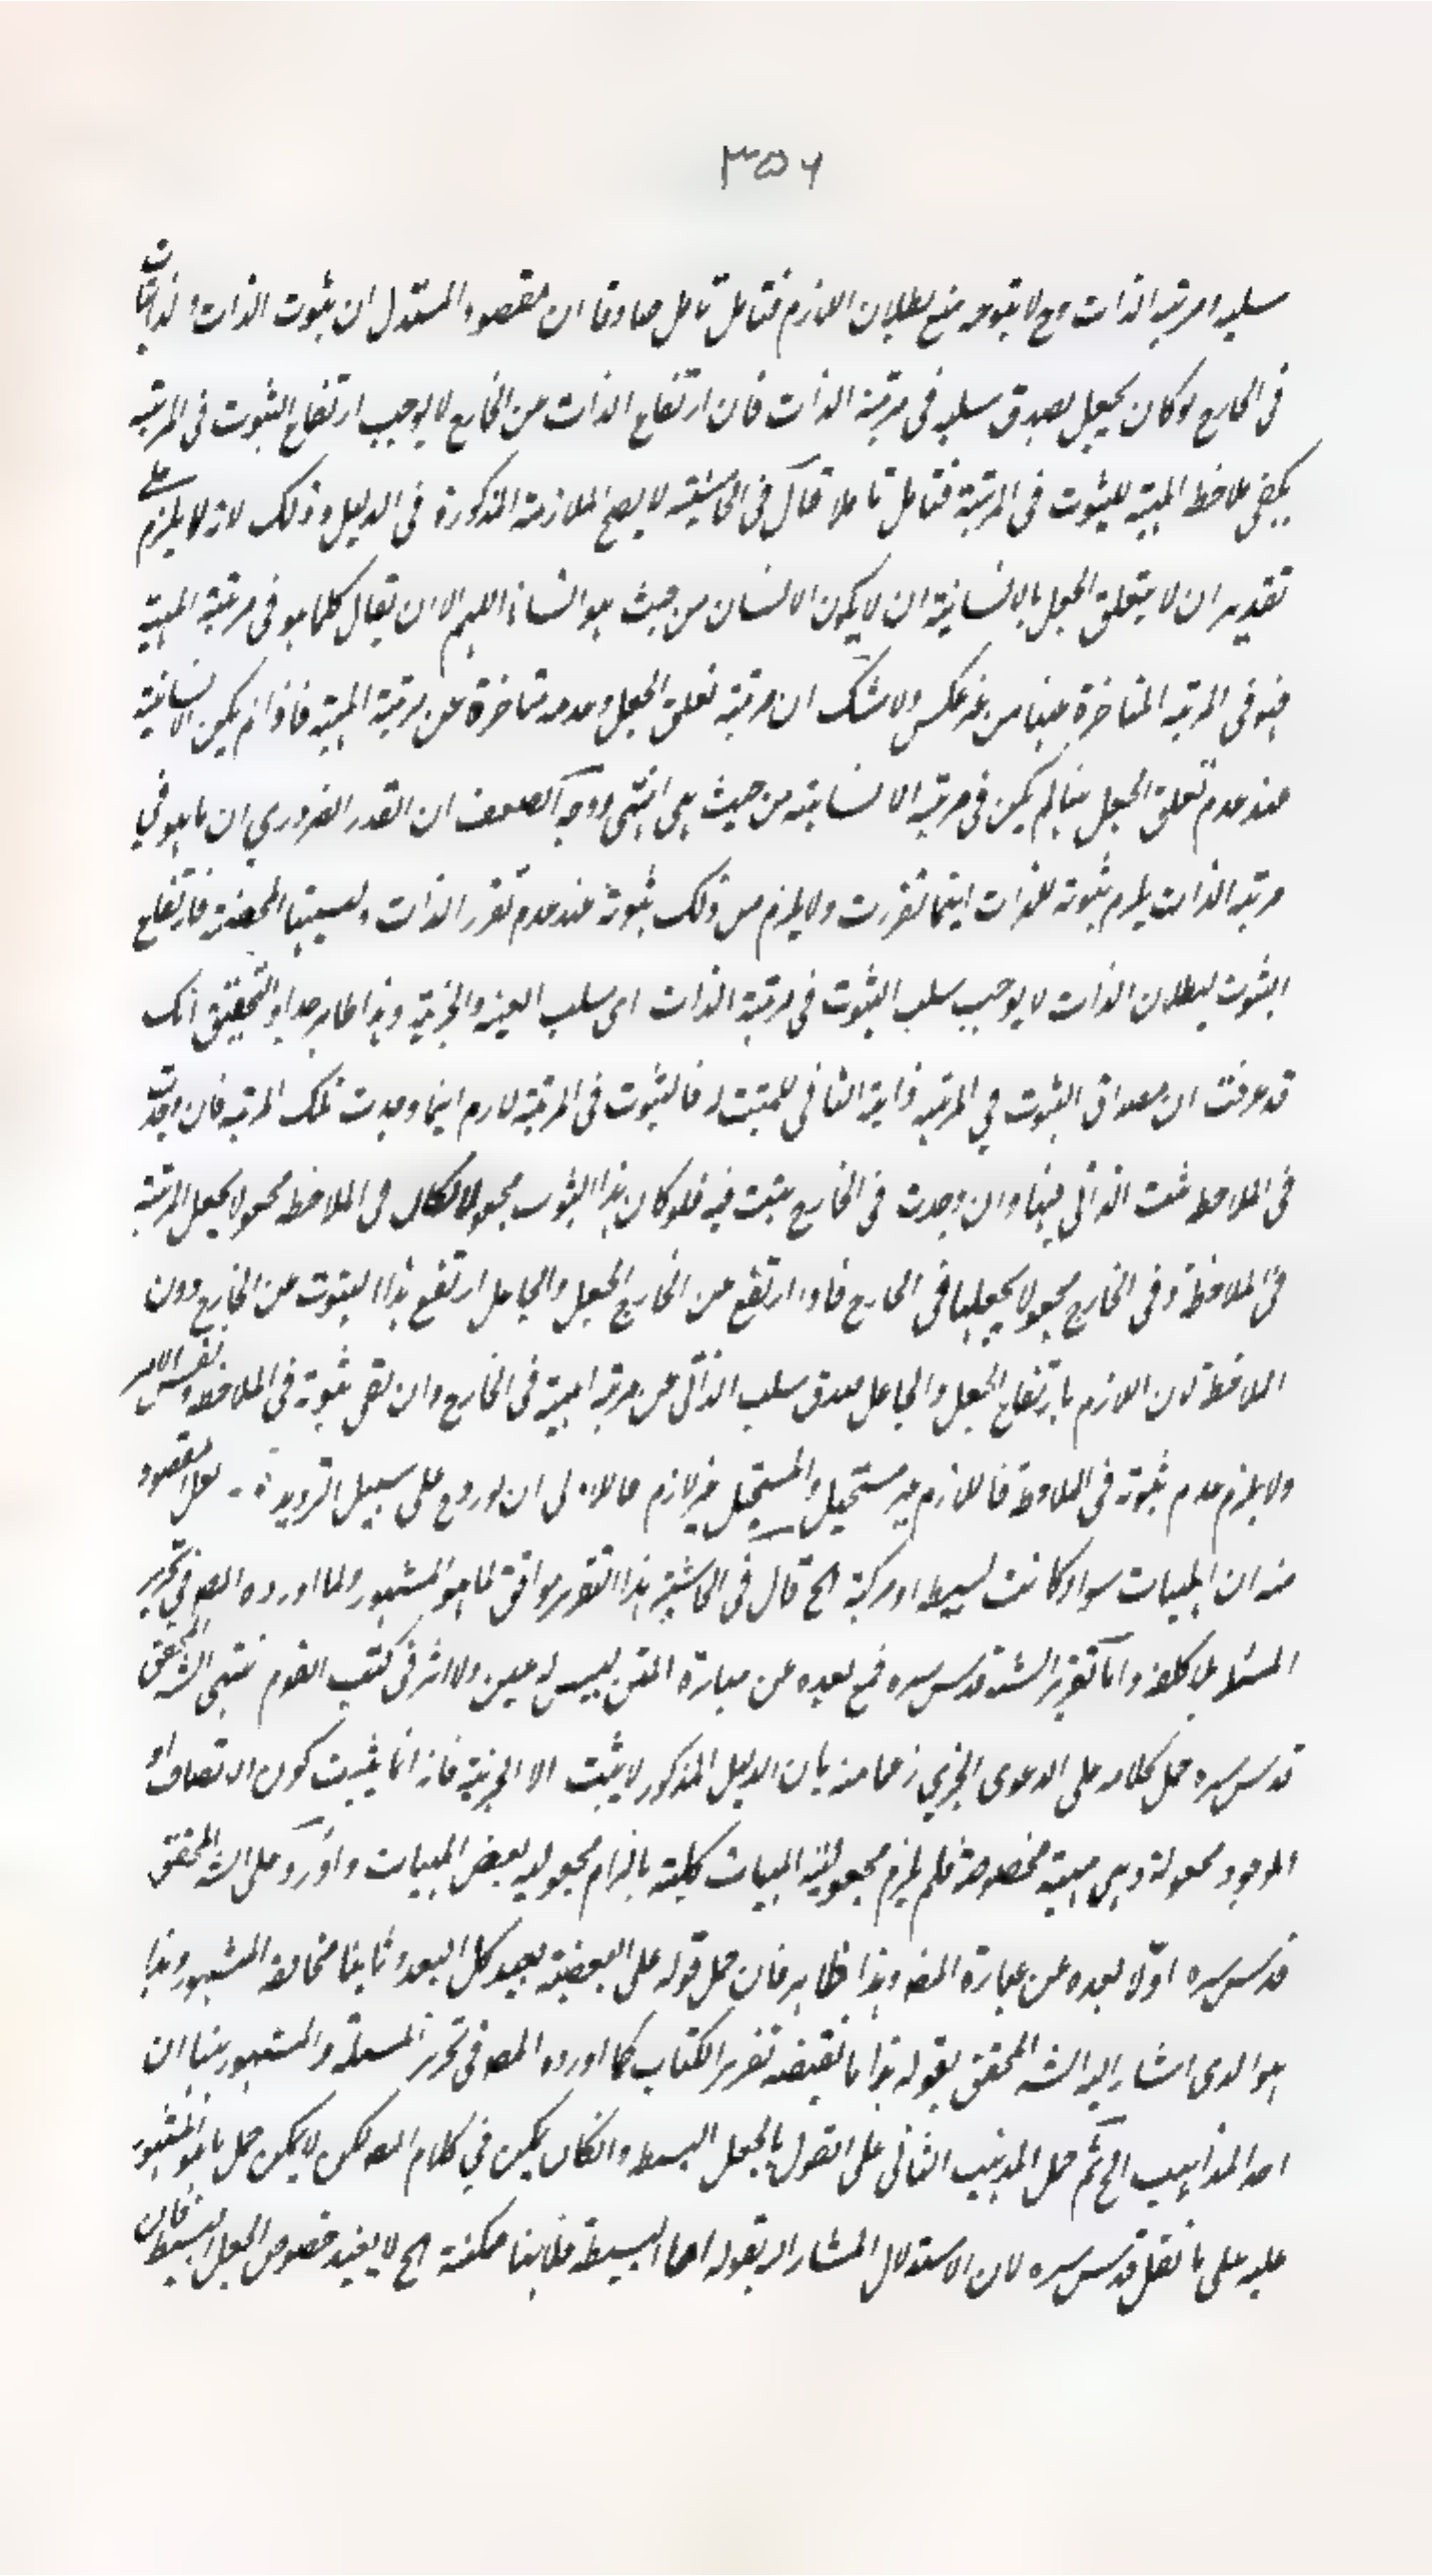 ٣٥٦
سلبه امرتبة الذات وح لا يتوجه منع بطلان اللازم فتامل تامل صادقا ان مقصود المستدل ان ثبوت الذات والذاتيات
فى الخارج لو كان بجعل يصدق سلبه فى مرتبة الذات فان ارتفاع الذات عن الخارج لا يوجب ارتفاع الثبوت فى المرتبة
يكفى ملاحظة المهية للثبوت فى المرتبة فتامل تاملا قال فى الحاشية لا يصح الملازمة المذكورة فى الدليل وذلك لانه لا يلزم على
تقدير ان لا يتعلق الجعل بالانسانية ان لا يكون الانسان من حيث هو انسانا اللهم الا ان يقال كلما هو فى مرتبة المهية
فهو فى المرتبة المتاخرة عنها من غير عكس ولا شك ان مرتبة تعلق الجعل وعدمه متاخرة عن مرتبة المهية فاذا لم يكن الانسانية
عند عدم تعلق الجعل بها لم يكن فى مرتبة الانسانية من حيث هى انتهى ووجه الضعف ان القدر الضروري ان ما هو في
مرتبة الذات يلزم ثبوته للذات اينما تقررت ولا يلزم من ذلك ثبوته عند عدم تقرر الذات وليسيتها المحضة فارتفاع
الثبوت لبطلان الذات لا يوجب سلب الثبوت فى مرتبة الذات اى سلب العينية والجزئية وهذا ظاهر جدا والتحقيق انك
قد عرفت ان مصداق الثبوت في المرتبة ذاتية الثانى للمثبت له فالثبوت فى المرتبة لازم اينما وجدت تلك المرتبة فان وجدت
فى الملاحظة ثبت الذاتى فيها وان وجدت فى الخارج يثبت فيه فلو كان هذا الثبوت مجعولا لكان فى الملاحظة مجعولا بجعل المرتبة
فى الملاحظة وفى الخارج مجعولا بجعلها فى الخارج فاذا ارتفع عن الخارج الجعل والجاعل ارتفع هذا الثبوت عن الخارج دون
الملاحظة لان اللازم بارتفاع الجعل والجاعل صدق سلب الذاتى عن مرتبة المهية فى الخارج وان بقى ثبوته فى الملاحظة ونفس الامر
ولا يلزم عدم ثبوته فى الملاحظة فاللازم غير مستحيل والمستحيل غير لازم فالاولى ان يورد ح على سبيل الترديد لعل المقصود
منه ان المهيات سواء كانت بسيطة او مركبة الخ قال فى الحاشية هذا التقرير موافق لما هو المشهور ولما اورده المص في تحرير
المسئلة بلا كلفة واما تقرير الشه قدس سره فمع بعده عن عبارة المتن ليس له عين ولا اثر فى كتب القوم انتهى الشه المحقق
قدس سره حمل كلامه على الدعوى الجزئي زعما منه بان الدليل المذكور لا يثبت الا الجزئية فانه انما يثبت كون الاتصاف او
الوجود مجعولة وهى مهية مخصوصة فلم يلزم مجعولية المهيات كلية بالزام مجعولية بعض المهيات واورد على الشه المحقق
قدس سره اولا بعده عن عبارة المص وهذا ظاهر فان حمل قوله على البعضية بعيد كل البعد وثانيا مخالفة المشهور وهذا
هو الذى اشار اليه الشه المحقق بقوله هذا ما يقتضه تقرير الكتاب كما اورده المص فى تحرير المسئلة والمشهور بها ان
احد المذاهب الخ ثم حمل المذهب الثانى على القول بالجعل البسيط وانكان يمكن في كلام المص لكن لا يمكن حمل ما هو المشهور
عليه على ما نقل قدس سره لان الاستدلال المشار اليه بقوله اما البسيطة فلانها ممكنة الخ لا يفيد خصوص الجعل البسيط فان